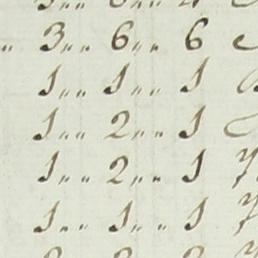 3 „ „ 6 „ „ 6
1 „ „ 1 „ „ 1
1 „ „ 2 „ „ 1
1 „ „ 2 „ „ 1
1 „ „ 1 „ „ 1